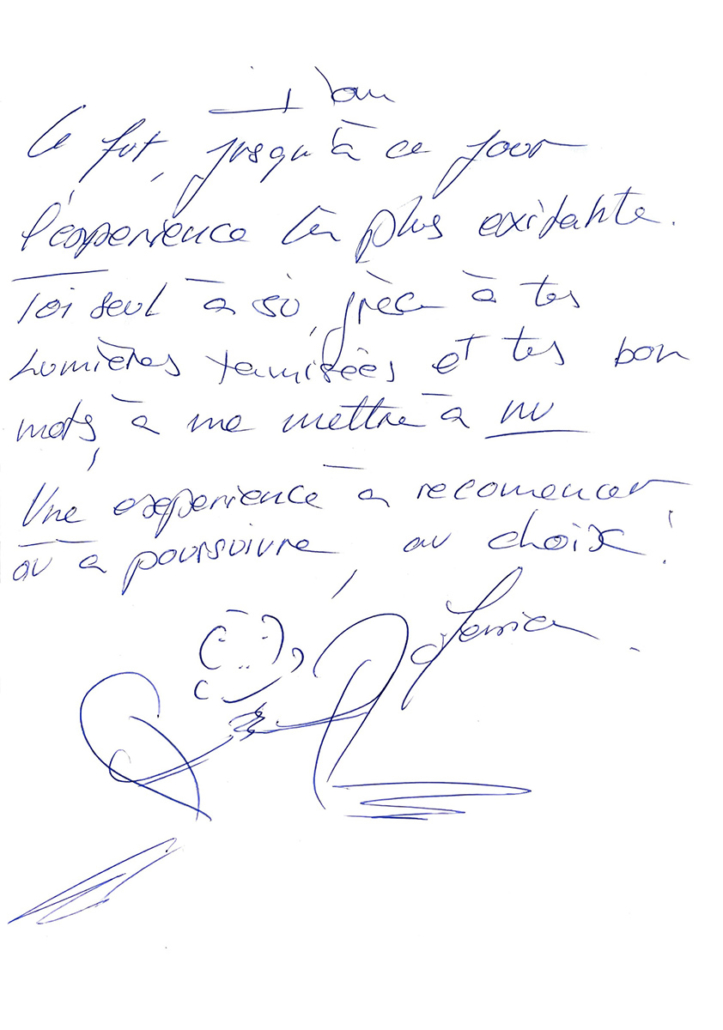 Ce fut, jusqu'à ce jour
l'éxperience la plus exidante.
Toi seul a sù, grèce à tes
Lumières tamisées et tes bon
mots, a me mettre a nu
Une experience a recomencer
où a poursuivre, au choix!